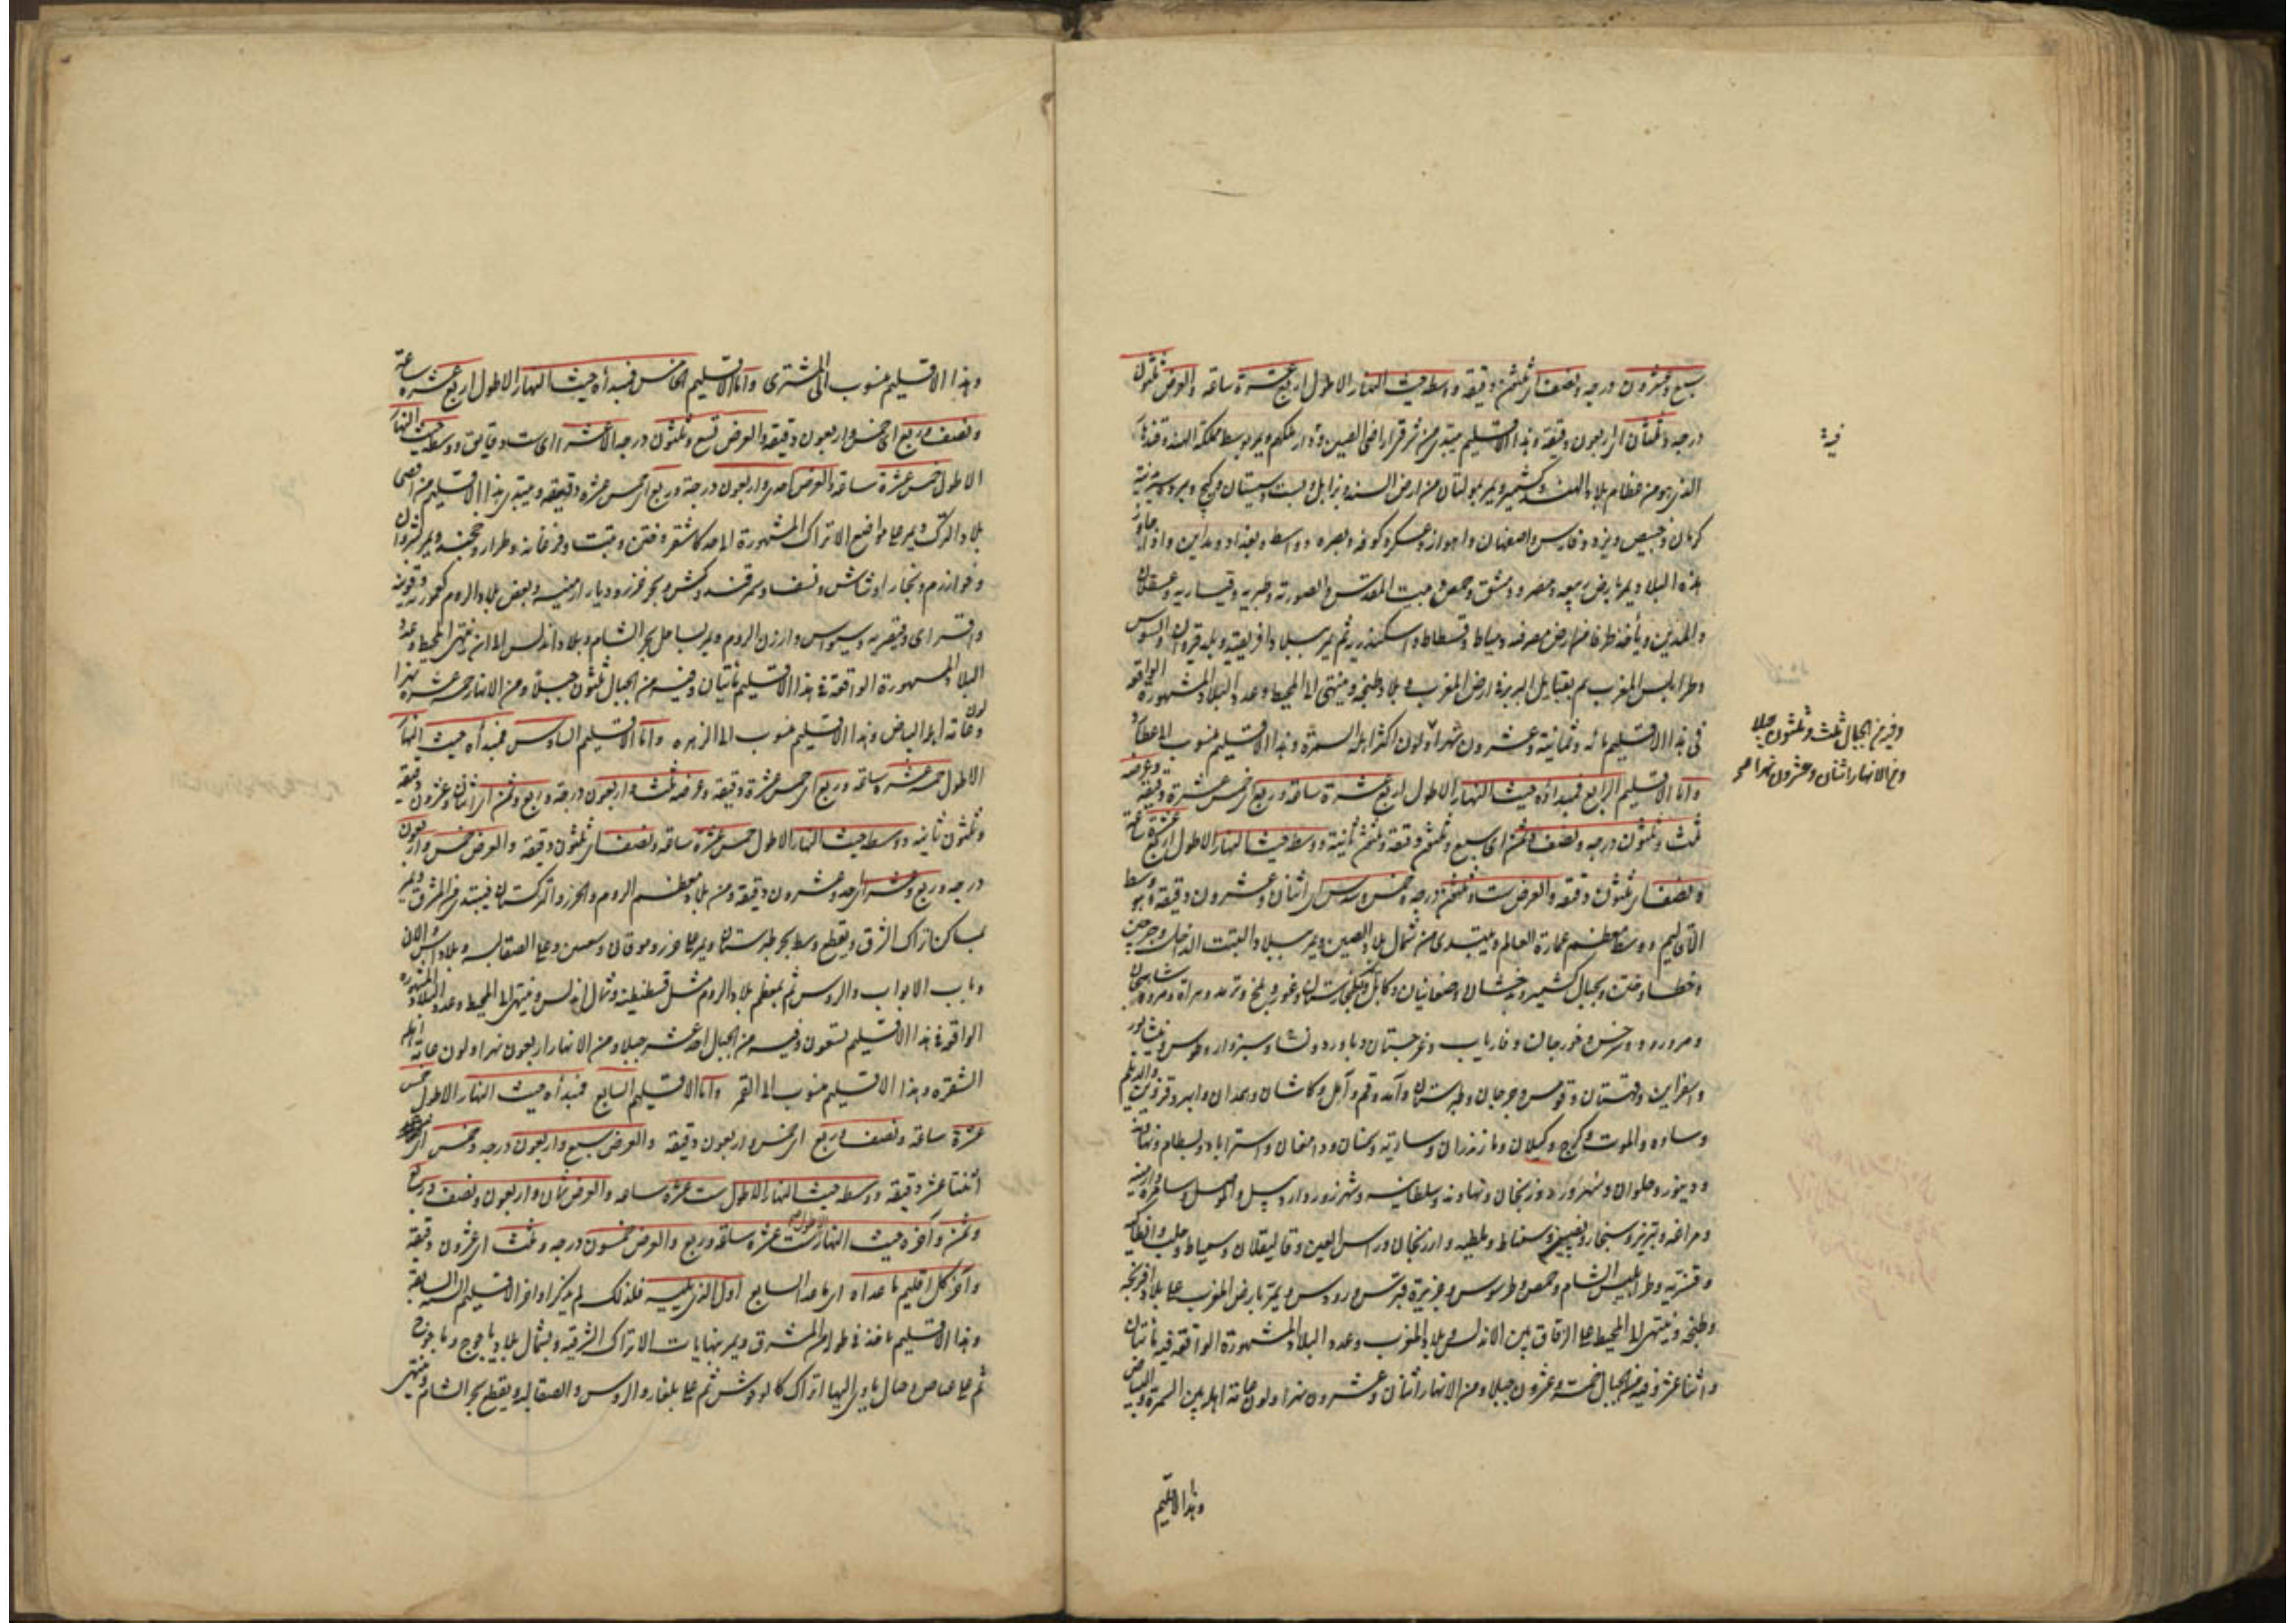 سبع وعشرون درجه ونصف اى ثلثون دقيقه ووسطه حيث النهار الاطول اربع عشرة ساعة والعرض ثلثون
درجه وثلثان اى اربعون دقيقة وهذا الاقليم يبتدى من شرق اراضى الصين ودار ملكهم ويمر بوسط مملكة الهند وقندهار
الذى هو من عظام بلاد الهند وكشمير ويمر بمولتان من ارض السند وزابل وبست وسيستان وكيج
كرمان وخبيص ويزد وفارس واصفهان واهواز وعسكر وكوفه وبصره وواسط وبغداد ومداين واذا جاوز
هذه البلاد يمر بارض ربيعه ومضر ودمشق وحمص وبيت المقدس والصورية وطبريه وقيساريه وعسقلان
والمدين ويأخذ طرفا من ارض مصر فيه دمياط وفسطاط واسكندريه ثم يمر ببلاد افريقية وبلد قيروان والسوس
وطرابلس المغرب ثم بقبايل البربر فى ارض المغرب وبلاد طنجه وينتهى الى المحيط وعدد البلاد المشهورة الواقعة
فى هذا الاقليم مائه وثمانية وعشرون شهرا ولون اكثر اهله السمرة وهذا الاقليم منسوب الى عطارد
واما الاقليم الرابع فمبداؤه حيث النهار الاطول اربع عشرة ساعة وربع اى خمس عشرة دقيقة وعرضه
ثلث وثلثون درجه ونصف وثمن اى سبع وثلثون دقيقة وثلثون ثانية ووسطه حيث النهار الاطول اربع عشرة ساعة
ونصف اى ثلثون دقيقة والعرض ست وثلثون درجه وخمس وسدس اى اثنان وعشرون دقيقة وهو وسط
الاقاليم ووسط معظم عمارة العالم ويبتدى من شمال بلاد الصين ويمر ببلاد التبت الداخل وجرجين
وخطا وختن وجبال كشمير وبدخشان وصغانيان وكابل وغور وبلخ وترمد وهراة ومرو شاهجان
ومرورود وسرخس وخورجان وفارياب وغرجستان وباورد ونسا وسبزوار وطوس ونيشابور
واسفراين وقهستان وقومس وجرجان وطبرستان وآمد وقم وآمل وكاشان وهمدان وابهر وقزوين والديلم
وساوه والموت وكرج وكيلان ومازندران وسارية وسمنان ودامغان واستراباد وبسطام ونهاوند
ودينور وحلوان وسهرورد وزنجان ونهاوند وسلطانيه وشهرزور واردبيل والموصل وسامره وارمنيه
ومراغه وتبريز وسنجار ونصيبين وسميساط وملطيه وارزنجان وراس العين وقاليقلان وسمياط وحلب وانطاكيه
وقنسرين وطرابلس الشام وحمص وطرسوس وجزيرة قبرس ورودس ويمر بارض المغرب على بلاد افرنجه
وطنجه وينتهى الى المحيط على الزقاق بين الاندلس وبلاد المغرب وعدد البلاد المشهورة الواقعة فيه مائتان
واثنا عشر وفيه من الجبال خمسة وعشرون جبلا ومن الانهار اثنان وعشرون نهرا ولون عامة اهله بين السمرة والبياض
وهذا الاقليم
فيه
وفيه من الجبال ثلث وثلثون جبلا
ومن الانهار اثنان وعشرون نهرا صح
وهذا الاقليم منسوب الى المشترى واما الاقليم الخامس فمبدأه حيث النهار الاطول اربع عشرة ساعة
ونصف وربع اى خمس واربعون دقيقة والعرض تسع وثلثون درجه الا عشر اى ست دقايق ووسطه حيث النهار
الاطول خمس عشرة ساعة والعرض احدى واربعون درجة وربع اى خمس عشرة دقيقه ويبتدى هذا الاقليم من اقصى
بلاد الترك ويمر على مواضع الاتراك المشهورة الى حد كاشغر وختن وتبت وفرغانه وطراز وخجند ويمر
وخوارزم وبخارا وشاش ونسف وسمرقند وكش وبحر خزر وديار ارمنيه وبعض بلاد الروم كعموريه وقونيه
واقسراى وقيصريه وسيواس وارزن الروم ويمر بساحل بحر الشام وبلاد اندلس الى ان ينتهى المحيط وعدد
البلاد المشهورة الواقعة فى هذا الاقليم مائتان وفيه من الجبال ثلثون جبلا ومن الانهار خمسة عشر نهرا
ولون عامة اهله البياض وهذا الاقليم منسوب الى الزهره واما الاقليم السادس فمبدأه حيث النهار
الاطول خمس عشرة ساعة وربع اى خمس عشرة دقيقه وعرضه ثلث واربعون درجة وربع وثمن اى اثنان وعشرون دقيقة
وثلثون ثانيه ووسطه حيث النهار الاطول خمس عشرة ساعة ونصف اى ثلثون دقيقه والعرض خمس واربعون
درجه وربع وعشر اى احد وعشرون دقيقة ومن بلاد معظم الروم والخزر والتركستان فيبتدى من المشرق ويمر
بمساكن اتراك الشرق ويقطع وسط بحر طبرستان ويمر على خزر وموقان وعلى الصقالبه وبلاد آس والان
وباب الابواب والروس ثم بمعظم بلاد الروم مثل قسطنطنيه وشمال اندلس وينتهى الى المحيط وعدد البلاد المشهوره
الواقعة فى هذا الاقليم تسعون وفيه من الجبال احد عشر جبلا ومن الانهار اربعون نهرا ولون عامة اهله
الشقره وهذا الاقليم منسوب الى القمر واما الاقليم السابع فمبدأه حيث النهار الاطول خمس
عشرة ساعة ونصف وربع اى خمس واربعون دقيقة والعرض سبع واربعون درجه وخمس اى
اثنتا عشر دقيقه ووسطه حيث النهار الاطول ست عشرة ساعه والعرض ثمان واربعون ونصف وربع
وثمن وآخره حيث النهار الاطول ست عشرة ساعة وربع والعرض خمسون درجه وثلث اى عشرون دقيقة
وآخر كل اقليم ما عداه اى ما عدا السابع اول الذى يليه فلذلك لم يذكر اواخر الاقاليم الستة السابقة
وهذا الاقليم ياخذ فى طوله من المشرق ويمر بنهايات الاتراك الشرقيه وبشمال بلاد ياجوج وماجوج
ثم على غياض وجبال ياوى اليها اتراك كالوحوش ثم على بلغار والروس والصقالبه ويقطع بحر الشام وينتهى